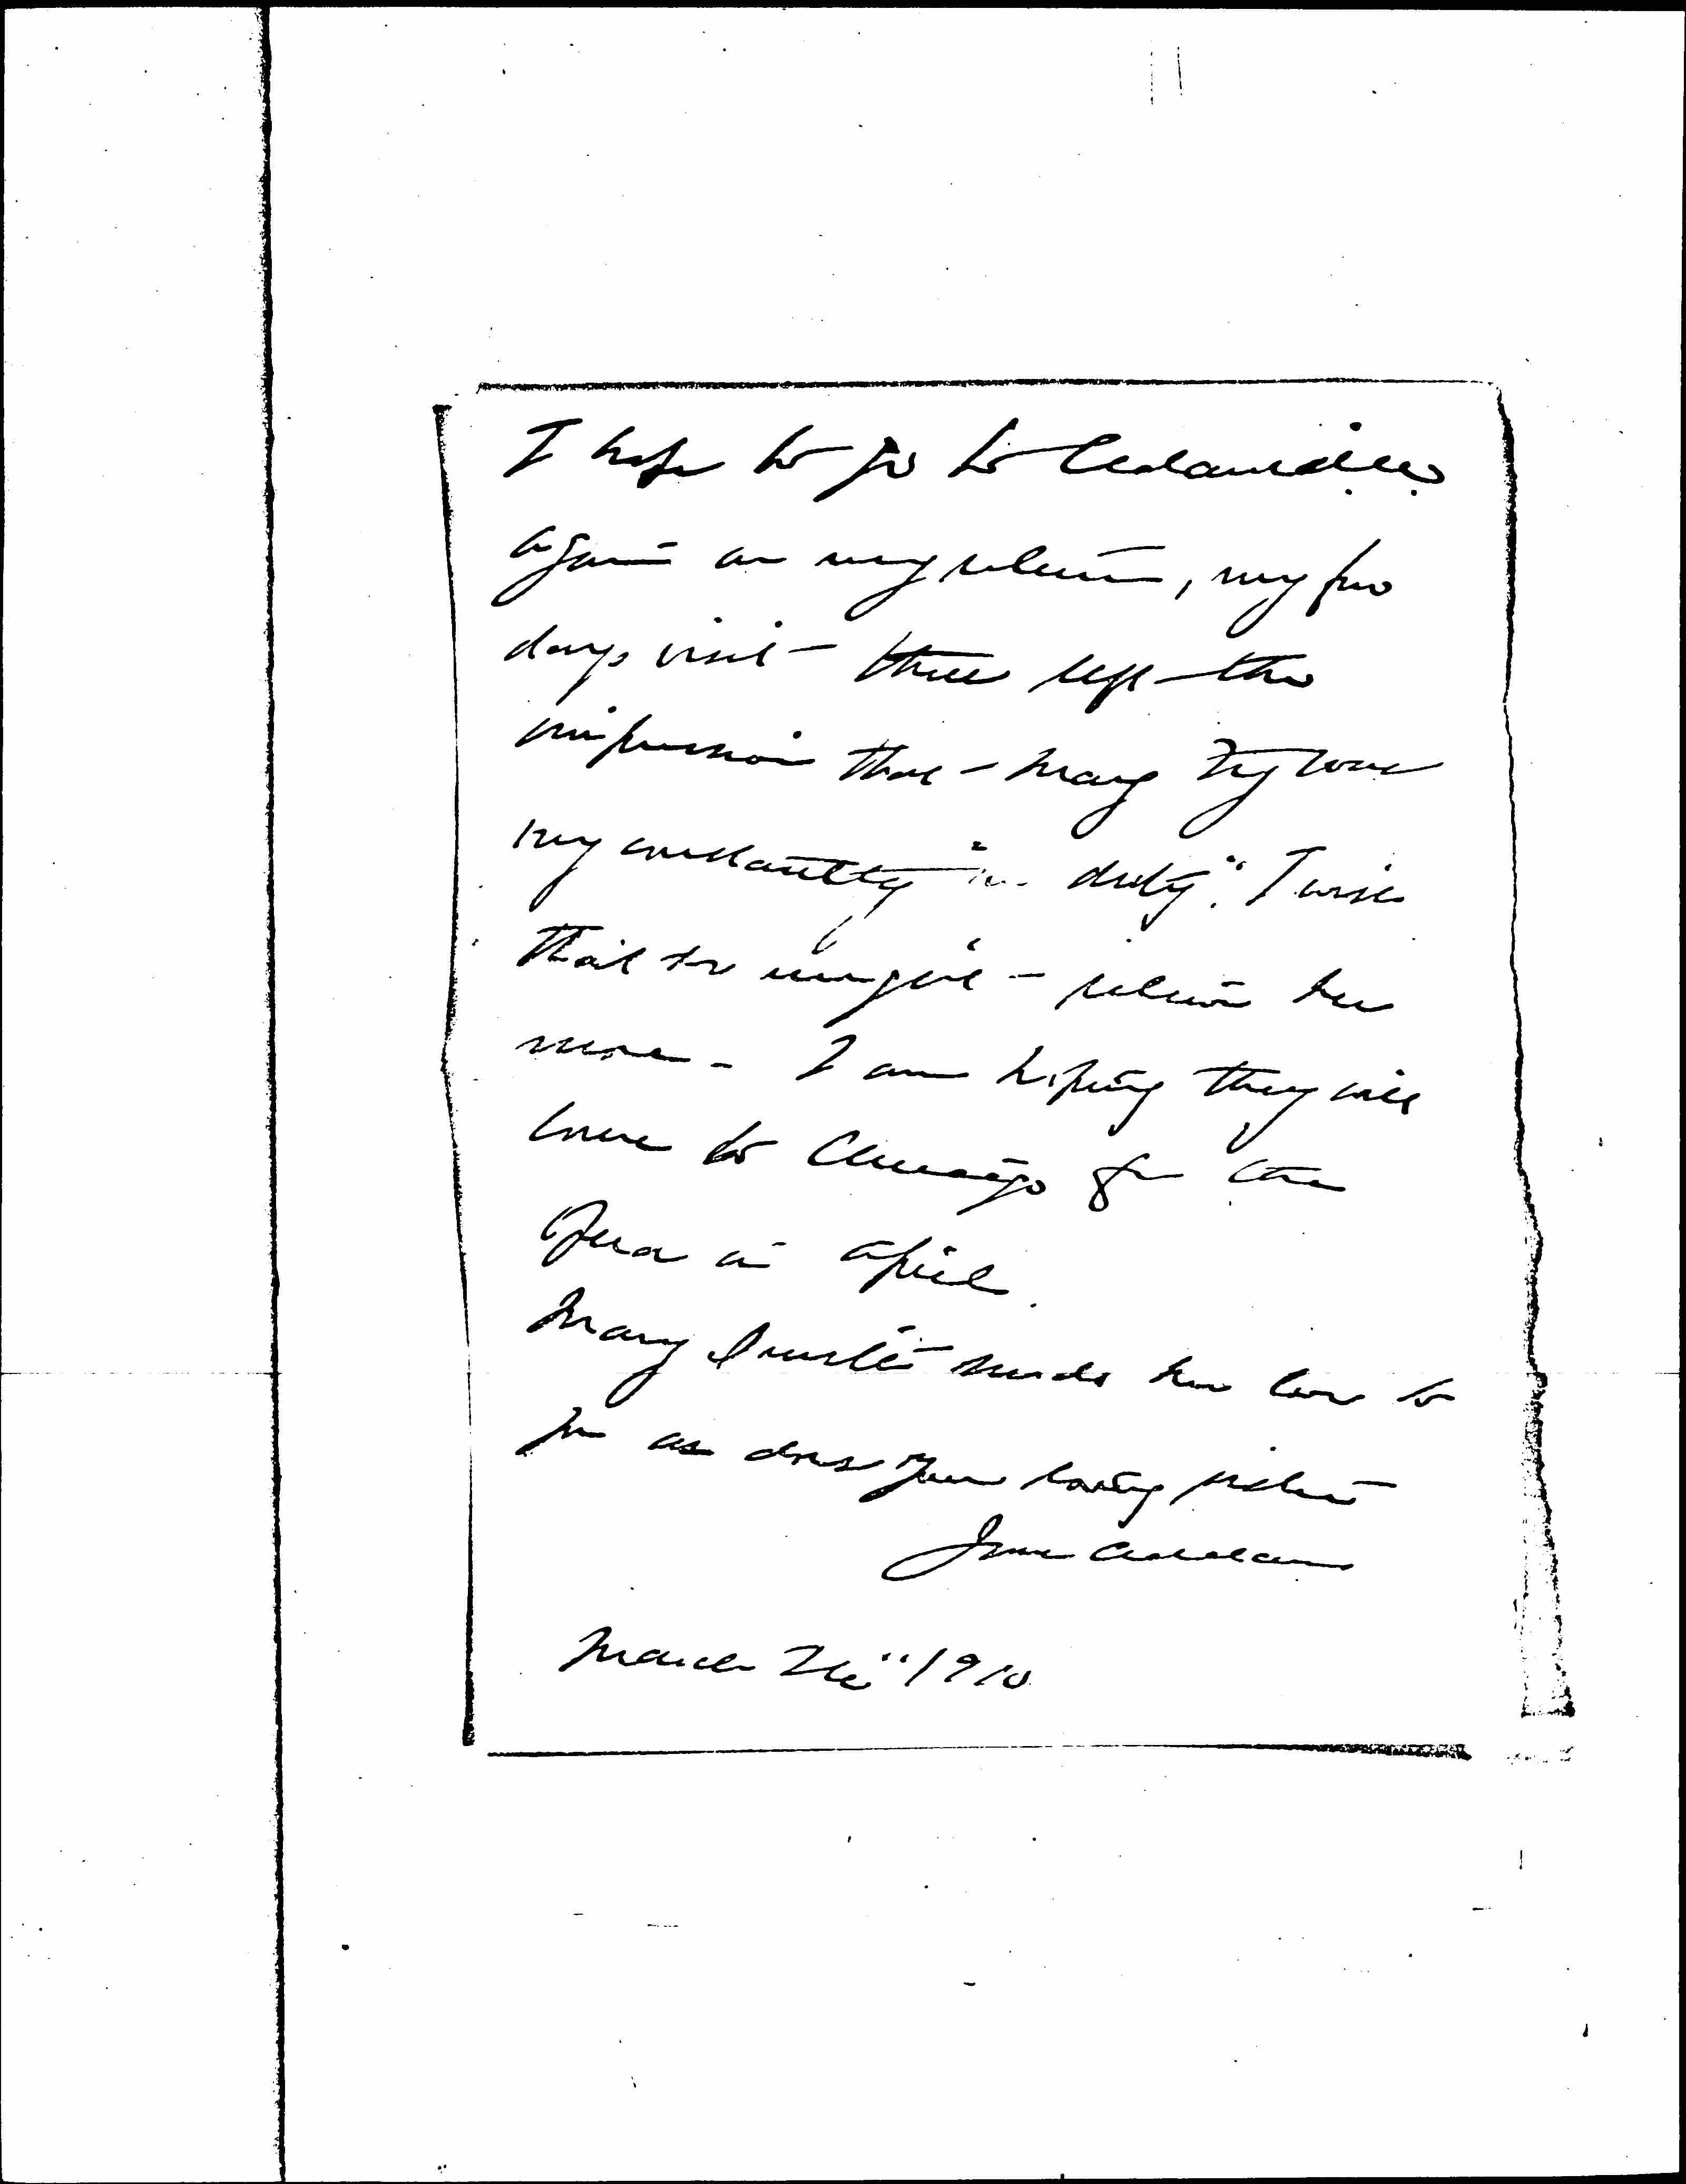 I hope to go to Cedarville
again on my return, my two
days visit there left the
impression that Mary try
constantly on duty". I wish
that we might relieve her
more - I am hoping they will
come to Chicago for the
Opera in April.
Mary Smith sends her love to
you as does your loving sister
Jane Addams
March 1910